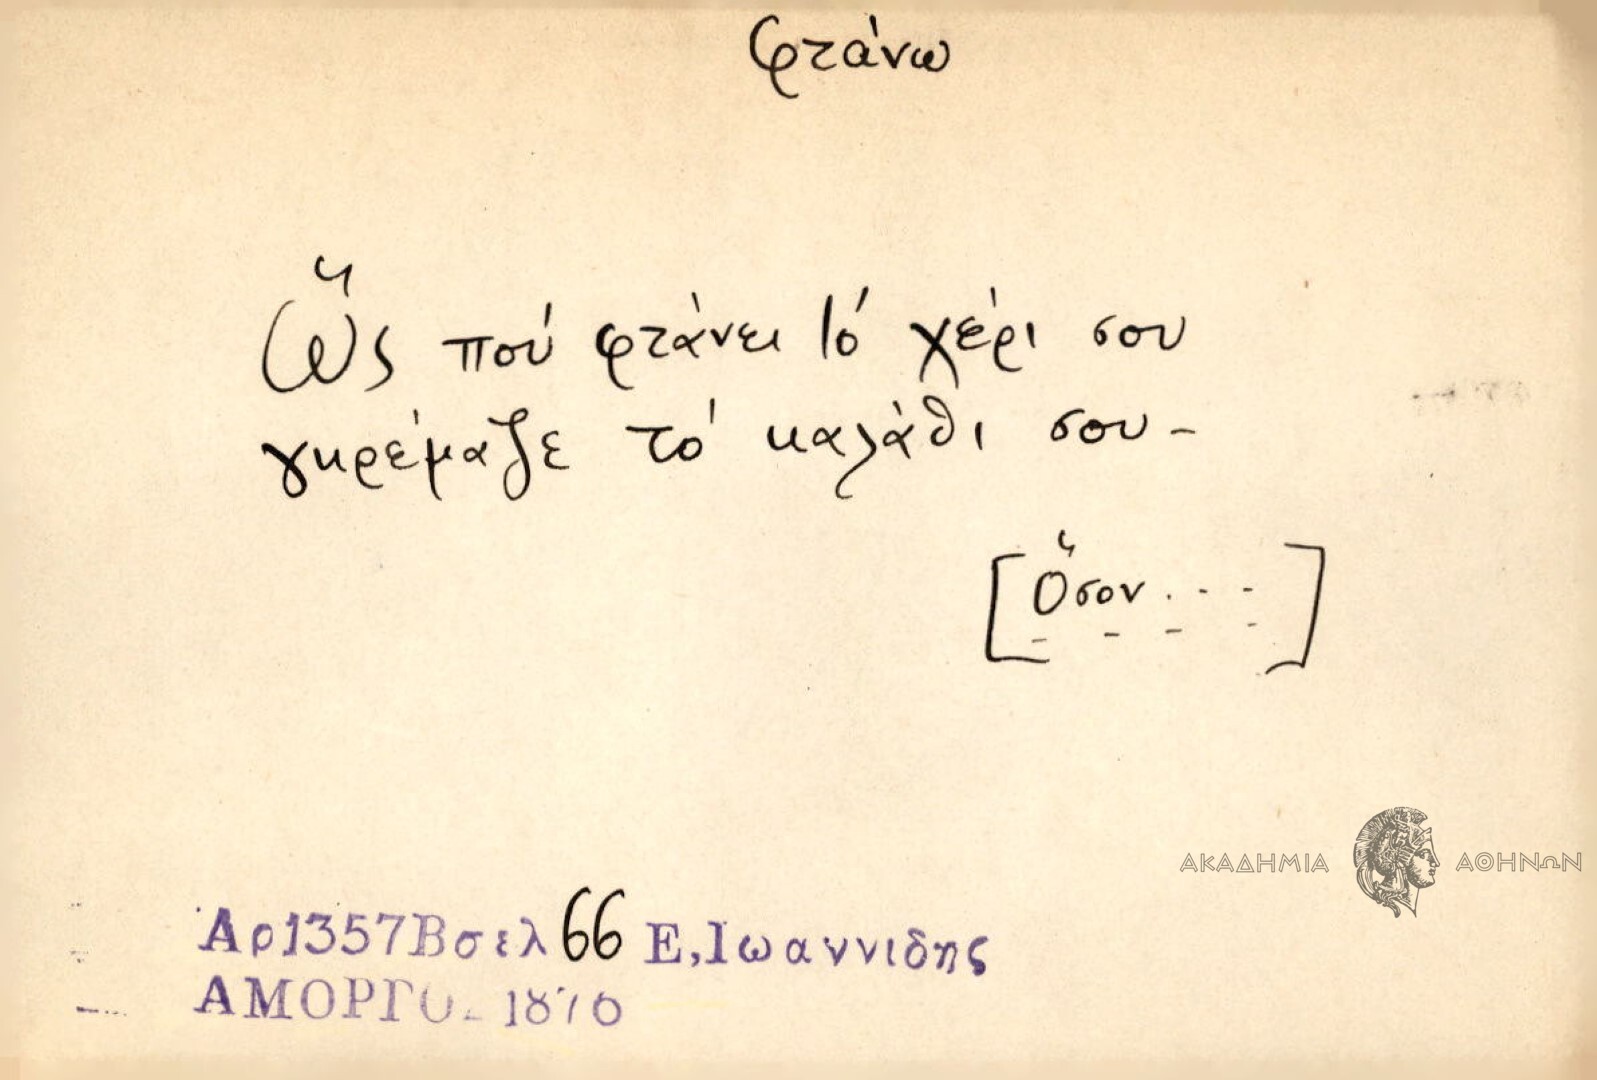 φτάνω
Ὥς πού φτάνει τό χέρι σου
γκρέμαζε τό καλάθι σου -
[Ὅσον . - -
- - - -]
ΑΚΑΔΗΜΙΑ ΑΘΗΝΩΝ
Αρ1357Βσελ 66 Ε,Ιωαννιδης
ΑΜΟΡΓΟ 1876